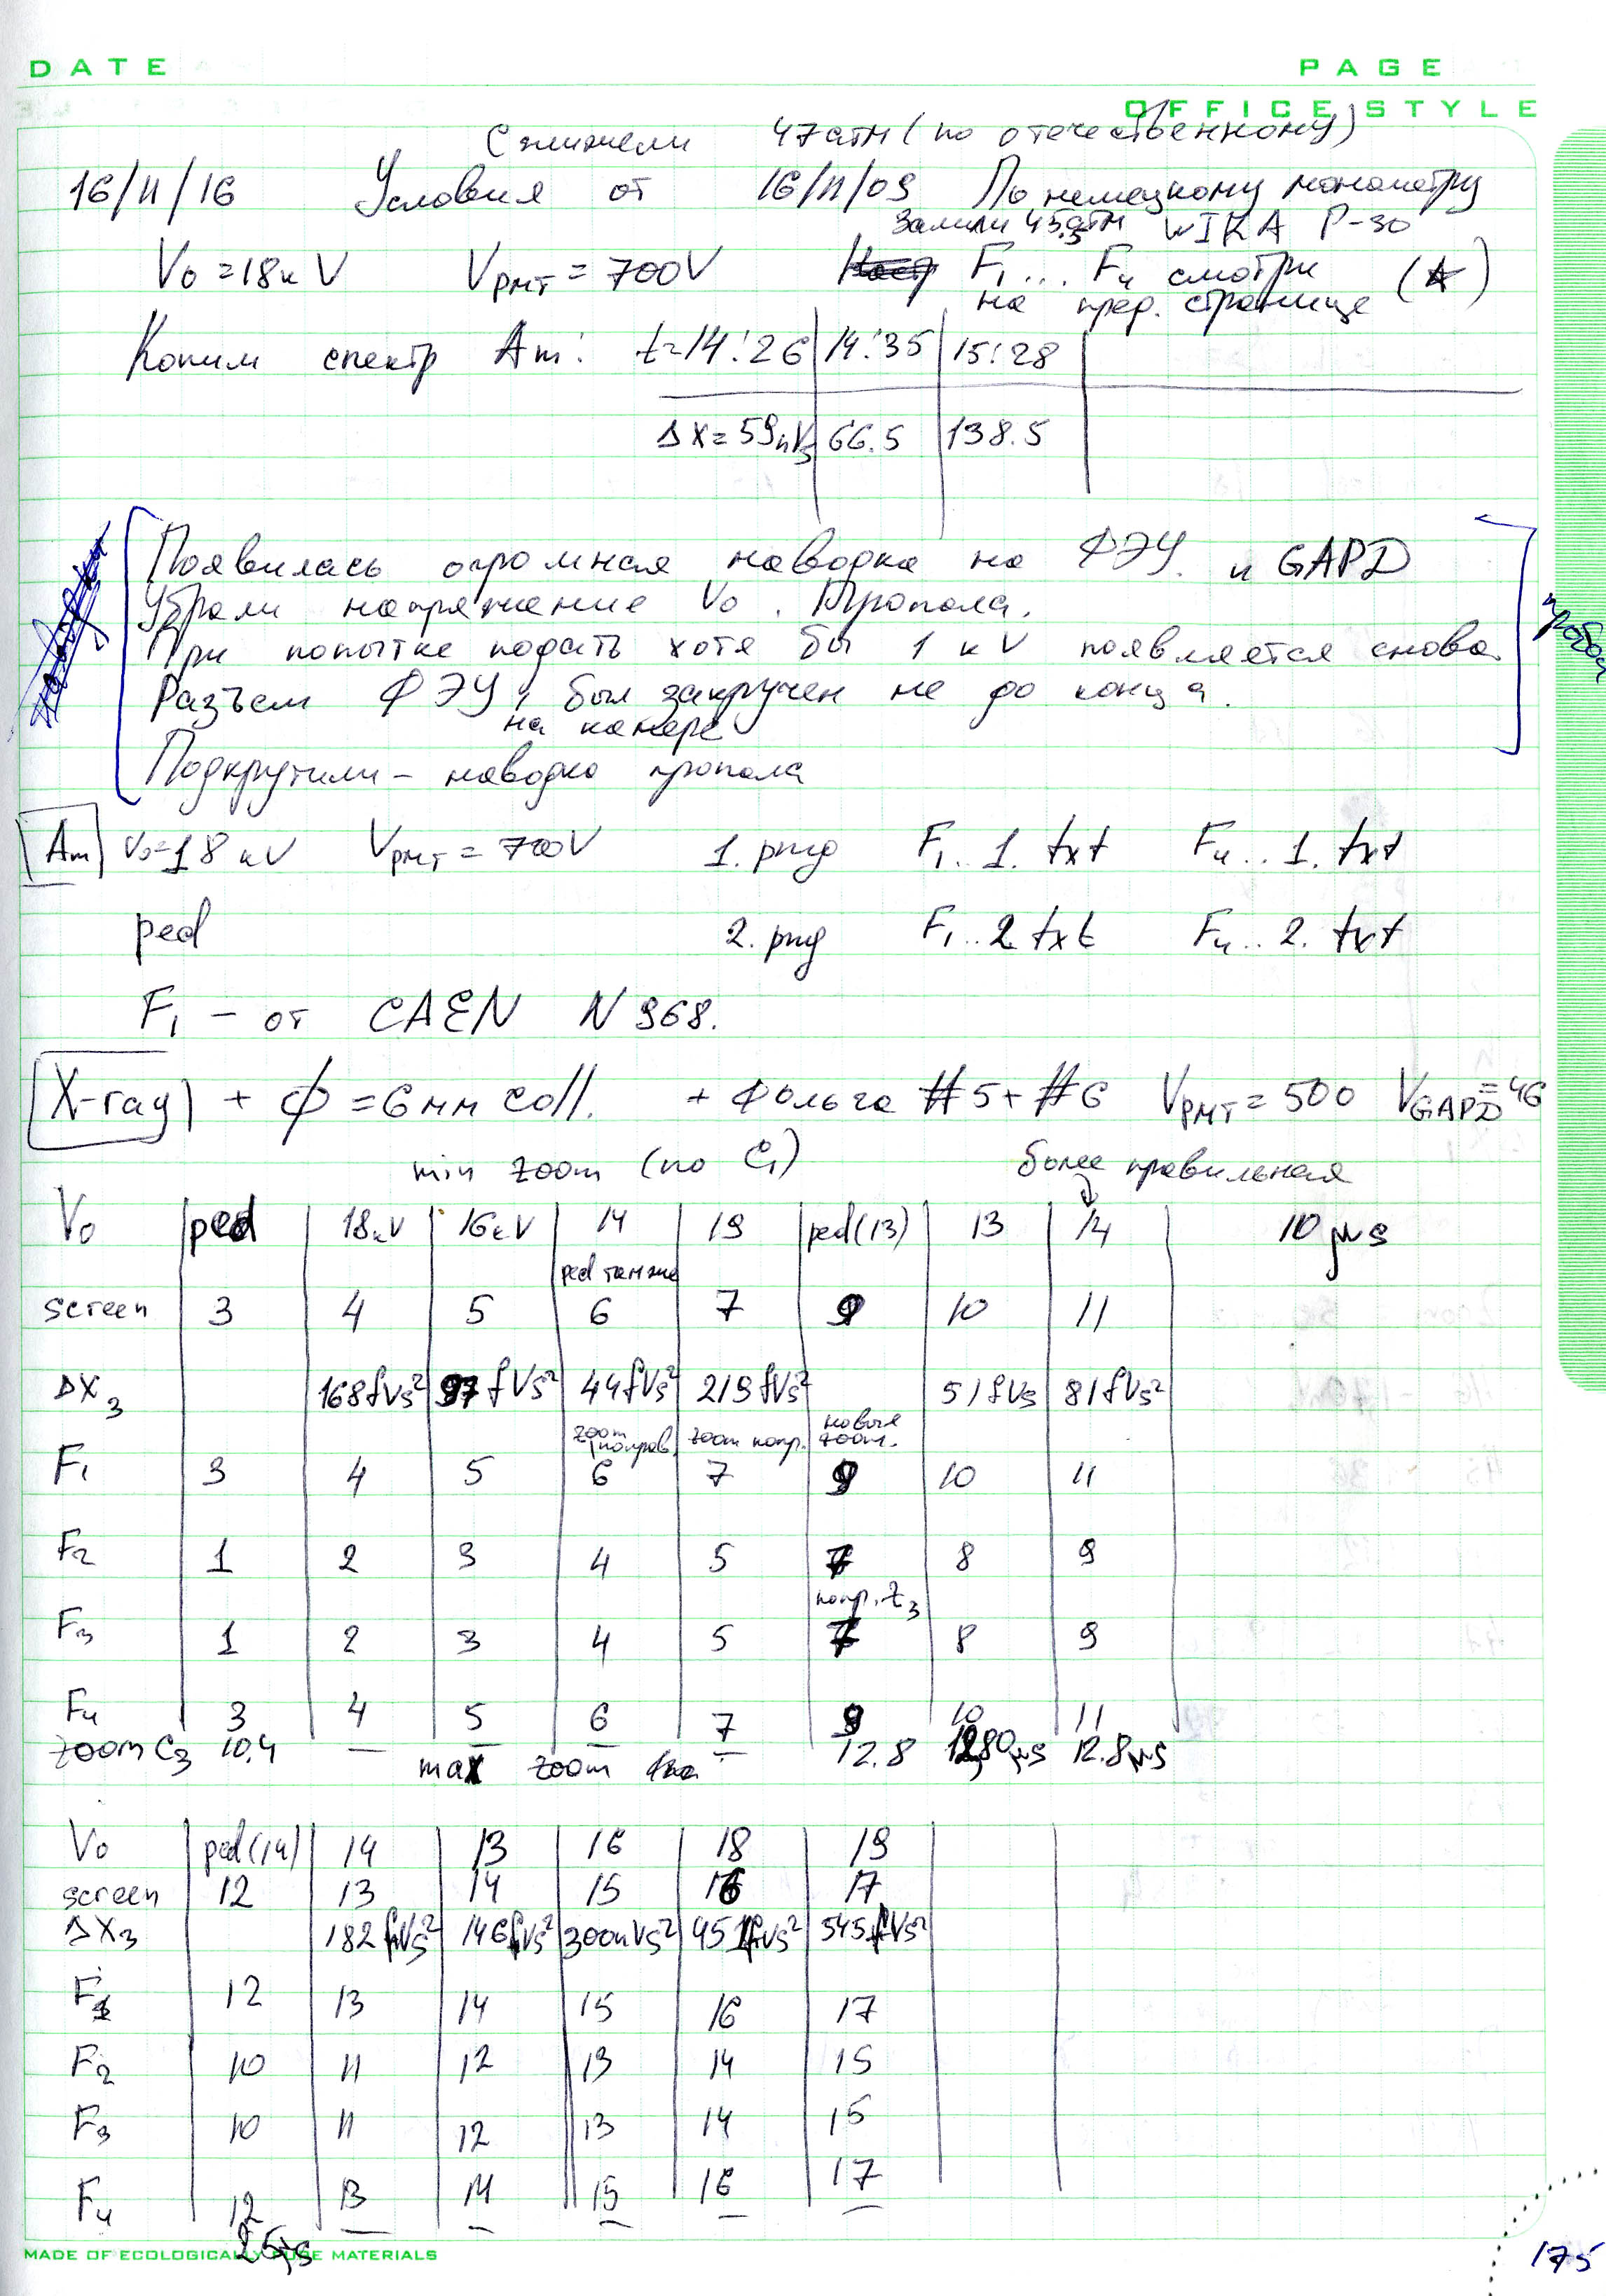 DATE
PAGE
OFFICE STYLE
Сжижели 47атм (по отечественному)
16/11/16 Условия от 16/11/09 По немецкому монометру
Залили 45.5атм WIKA P-30
V0 = 18кV VPMT = 700V F1... F4 смотри (*)
на пред. странице
Копим спектр Am: t=14:26 14:35 15:28
ΔX = 59nVs 66.5 138.5
Появилась огромная наводка на ФЭУ. и GAPD
Убрали напряжение V0. Пропала.
При попытке подать хотя бы 1 кV появляется снова.
пробой
Разъем ФЭУ, был закручен не до конца.
на камере
Подкрутили - наводка пропала
Am V0=18кV VPMT = 700V 1.png F1..1.txt F4..1.txt
ped 2.png F1..2.txt F4..2.txt
F1 - от CAEN N968.
X-ray + ϕ = 6мм coll. + Фольга #5+#6 VPMT = 500 VGAPD=46
min zoom (по C1) более правильная
V0 ped 18кV 16кV 14 19 ped(13) 13 14 10 μs
ped там же
screen 3 4 5 6 7 9 10 11
ΔX3 168fVs² 97fVs² 44fVs² 219fVs² 51fVs 81fVs²
zoom поправ. zoom попр. новые zoom.
F1 3 4 5 6 7 9 10 11
F2 1 2 3 4 5 7 8 9
попр. z3
F3 1 2 3 4 5 7 8 9
F4 3 4 5 6 7 9 10 11
zoom C3 10.4 — — — — 12.8 12.80μs 12.8μs
max zoom
V0 ped(14) 14 13 16 18 19
screen 12 13 14 15 16 17
ΔX3 182fVs² 146fVs² 300nVs² 451fVs² 545fVs²
F1 12 13 14 15 16 17
F2 10 11 12 13 14 15
F3 10 11 12 13 14 15
F4 12 13 14 15 16 17
25μs — — — — —
MADE OF ECOLOGICALLY PURE MATERIALS
175